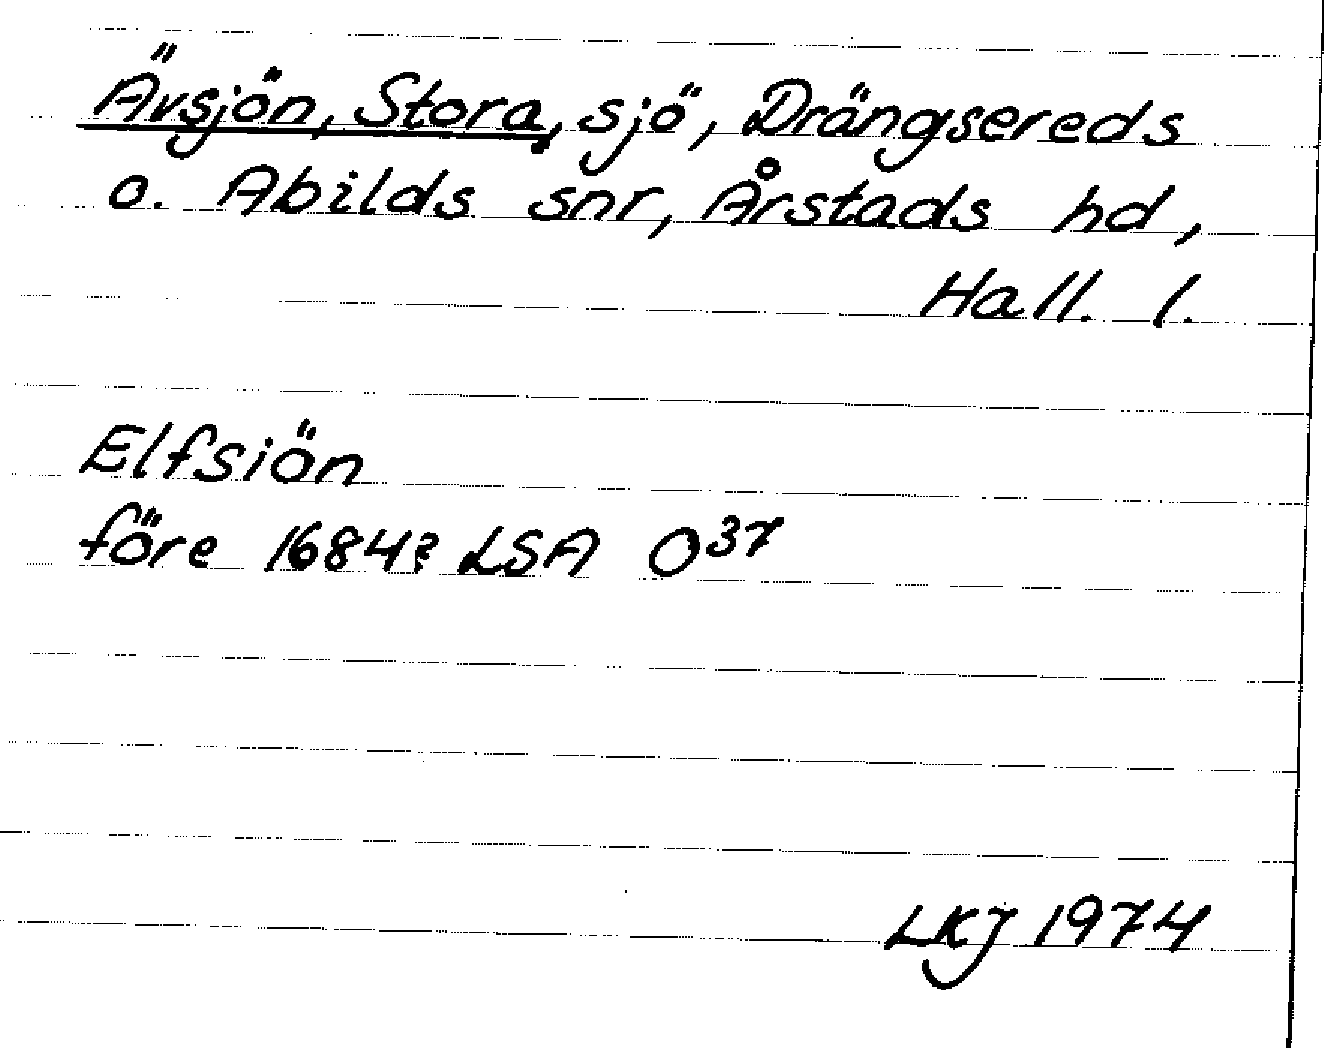 Ävsjön, Stora, sjö, Drängsereds
o. Abilds snr, Årstads hd,
Hall. l.
Elfsiön
före 1684? LSA O37
LKJ 1974